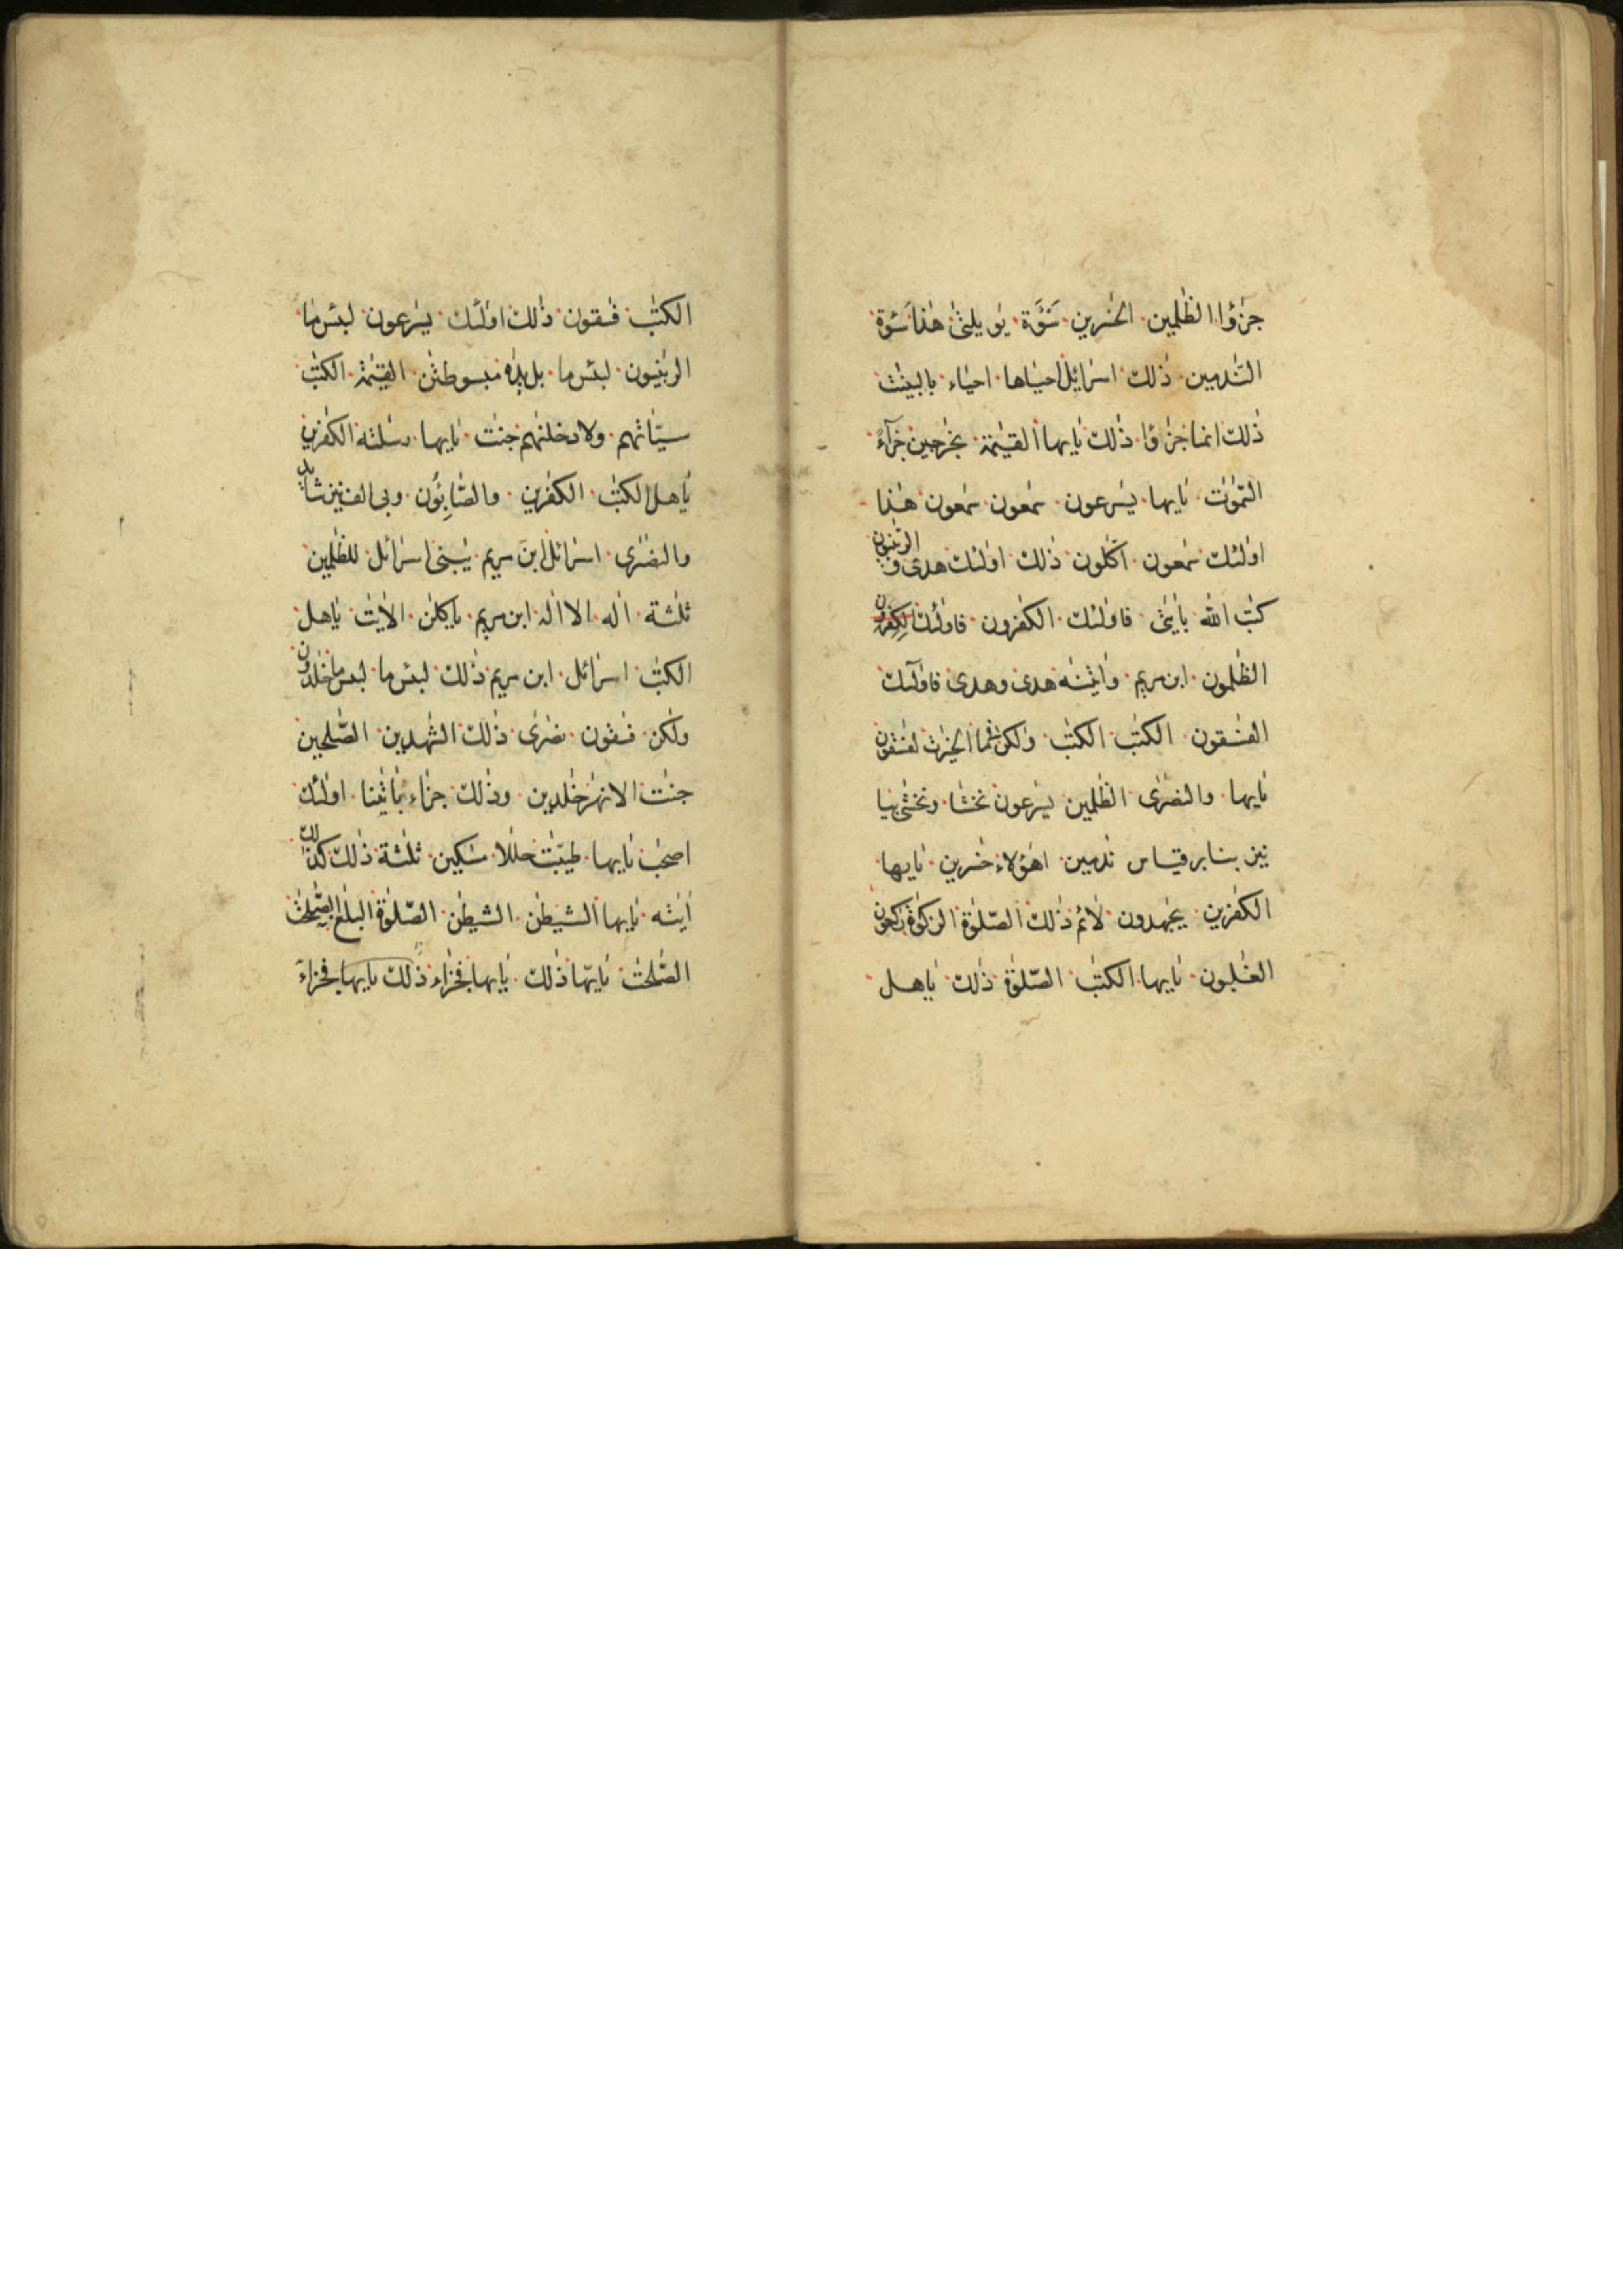 جزٰؤا الظٰلمين الخٰسرين سَوَءَة يٰويلتىٰ هٰذا سوءة
النّٰدمين ذٰلك اسرٰائيل احيٰاها احيٰاء بالبينٰت
ذٰلك انما جزٰؤا ذٰلك يٰايها القيٰمة بخٰرجين جزٰآءً
السّمٰوٰت يٰايها يسٰرعون سمّٰعون سمّٰعون هٰذا
اولٰئك سمّٰعون اكّٰلون ذٰلك اولٰئك هدى و الربّٰنيون
كتٰب الله بايٰتى فاولٰئك الكٰفرون فاولٰئك الكٰفرون
الظٰلمون ابن مريم واتيٰنٰه هدى وهدى فاولٰئك
الفٰسقون الكتٰب الكتٰب ولٰكن فى ما الخيرٰت لفٰسقون
يٰايها والنصٰرٰى الظٰلمين يسٰرعون نخشٰا ونخشىٰ بيا
ئين بنا برقياس ندٰمين اهٰؤلاء خٰسرين يٰايها
الكٰفرين يجٰهدون لائم ذٰلك الصّلٰوة الزكٰوة رٰكعون
الغٰلبون يٰايها الكتٰب الصّلٰوة ذٰلك يٰاهل
الكتٰب فٰسقون ذٰلك اولٰئك يسٰرعون لبئس ما
الربّٰنيون لبئس ما بل يدٰه مبسوطتٰن القيٰمة الكتٰب
سيّاتهم ولادخلنٰهم جنّٰت يٰايها رسٰلته الكٰفرين
يٰاهل الكتٰب الكٰفرين والصّٰابِؤُن
والنصٰرٰى اسرٰائل ابن مريم يٰبنى اسرٰائل للظٰلمين
ثلٰثة الٰه الا الٰه ابن مريم ياكلٰن الايٰت يٰاهل
الكتٰب اسرٰائل ابن مريم ذٰلك لبئس ما لبئس ما خٰلدون
ولٰكن فٰسقون نصٰرٰى ذٰلك الشّٰهدين الصّٰلحين
جنّٰت الانهٰر خٰلدين وذٰلك جزٰاء بٰايٰتنا اولٰئك
اصحٰب يٰايها طيّبٰت حلٰلا مسٰكين ثلٰثة ذٰلك كذٰلك
اٰيٰته يٰايها الشيطٰن الشيطٰن الصّلٰوة البلٰغ الصّٰلحٰت
الصّٰلحٰت يٰايّها ذٰلك يٰايها فجزٰاء ذٰلك يايها فجزٰاء